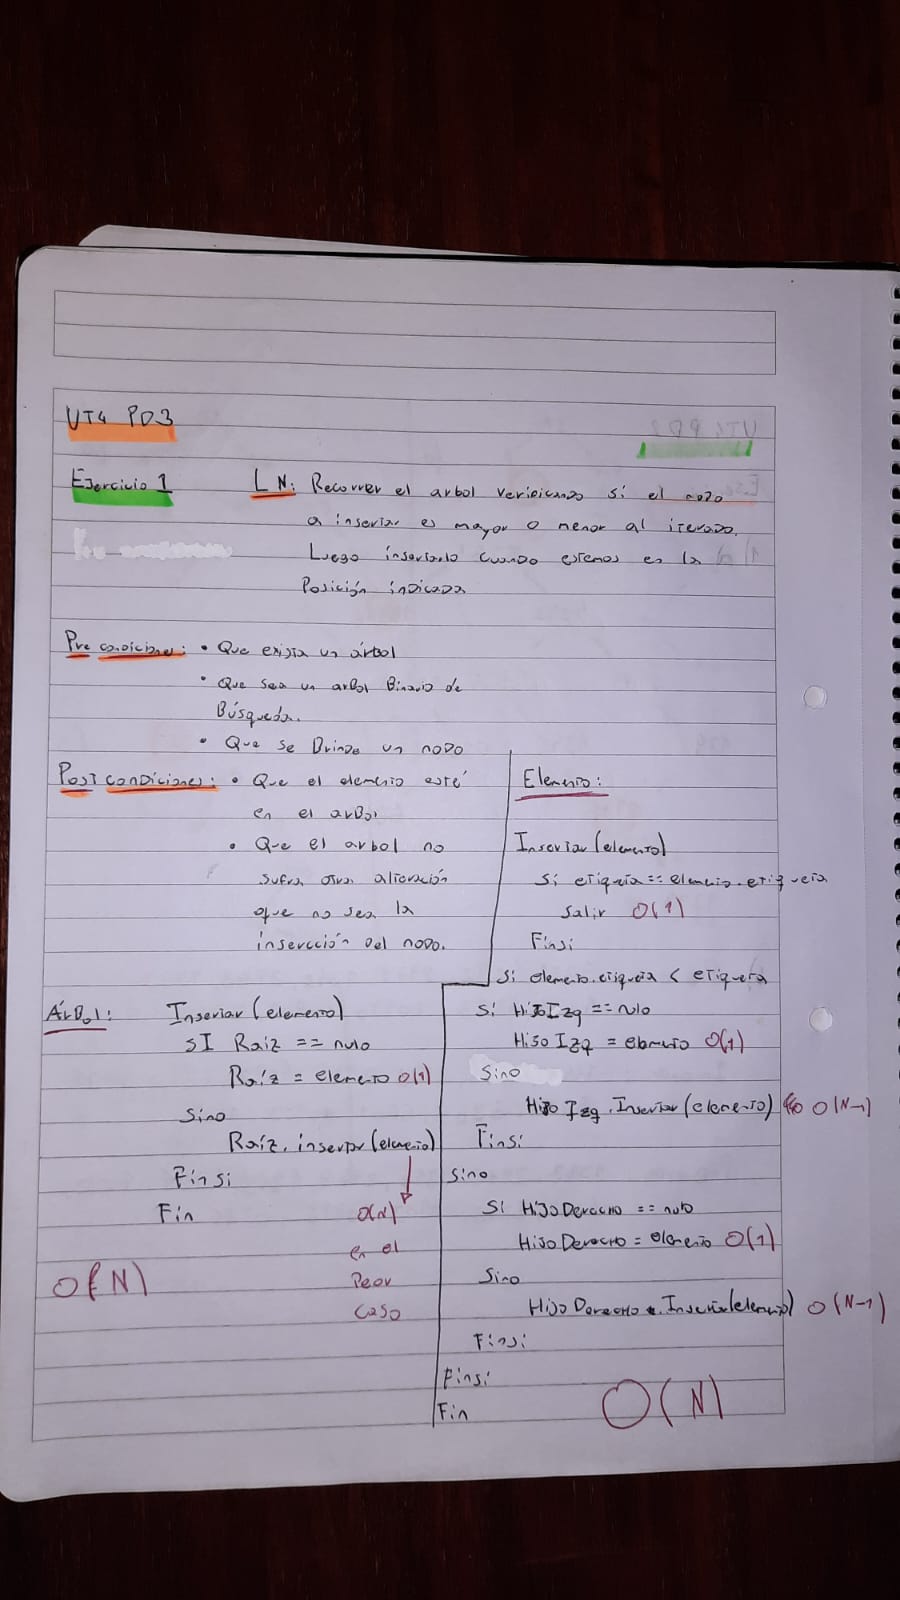 UT4 PD3
Ejercicio 1
LN: Recorrer el arbol verificando si el nodo
a insertar es mayor o menor al iterado.
Luego insertarlo cuando estemos en la
Posición indicada
Pre condiciones: • Que exista un árbol
• Que sea un arbol Binario de
Búsqueda.
• Que se Brinde un nodo
Post condiciones: • Que el elemento esté
en el arbol
• Que el arbol no
sufra otra alteración
que no sea la
insercción del nodo.
Árbol:
Insertar (elemento)
SI Raíz == nulo
Raíz = elemento O(1)
Sino
Raíz. insertar (elemento)
Finsi
Fin
O(N)
en el
Peor
caso
O(N)
Elemento:
Insertar (elemento)
Si etiqueta == elemento.etiqueta
Salir O(1)
Finsi
Si elemento.etiqueta < etiqueta
Si HijoIzq == nulo
HijoIzq = elemento O(1)
Sino
HijoIzq.Insertar (elemento) O(N-1)
Finsi
Sino
Si HijoDerecho == nulo
HijoDerecho = elemento O(1)
Sino
HijoDerecho.Insertar(elemento) O(N-1)
Finsi
Finsi
Fin
O(N)